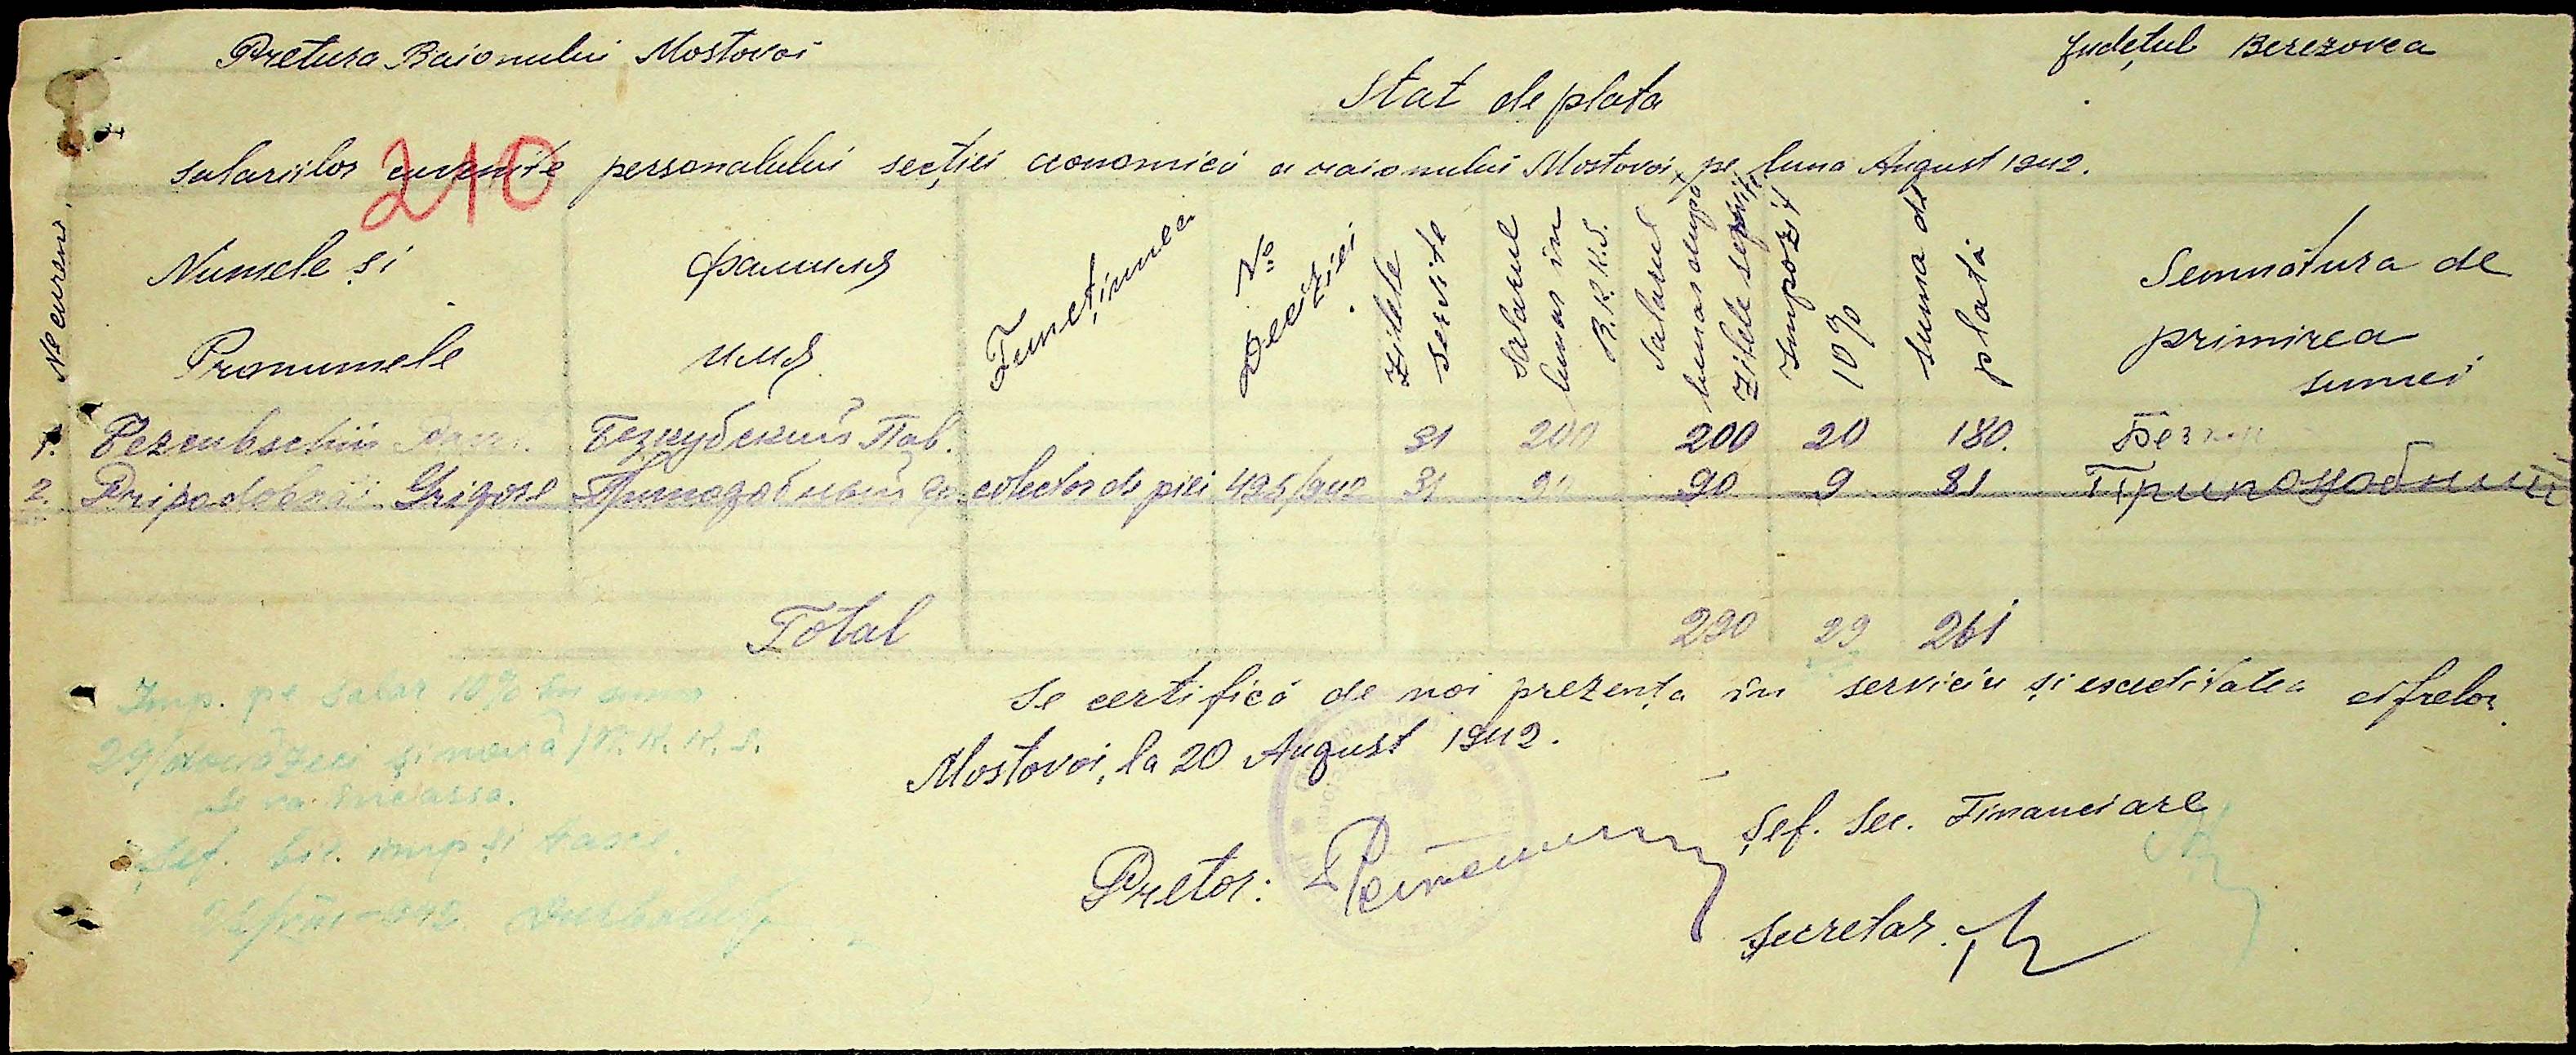 Pretura Raionului Mostovoi
Județul Berezovca
Stat de plata
210
salariilor cuvenite personalului secției economică a raionului Mostovoi pe luna August 1942.
№ curent.
Numele și
Pronumele
фамилия
имя
Funcțiunea
№
Deciziei
Zilele
servite
Salarul
lunar în
R.K.K.S.
Salarul
lunar după
zilele servite
Impozit
10%
Suma de
plată
Semnătura de
primirea
sumei
1. Безкубский Пав. 31 200 200 20 180.
2. Pripadobnii Grigore colector de piei 495/942 31 90 90 9 81 Приподобний
Total 290 29 261
Se certifică de noi prezența în serviciu și exactitatea cifrelor.
Mostovoi, la 20 August 1942.
Imp. pe salar 10% în suma
29/douăzeci și nouă/R.K.K.S.
Se va încassa.
Șef. bir. imp și taxe.
Pretor:
Șef. Sec. Financiare
Secretar.